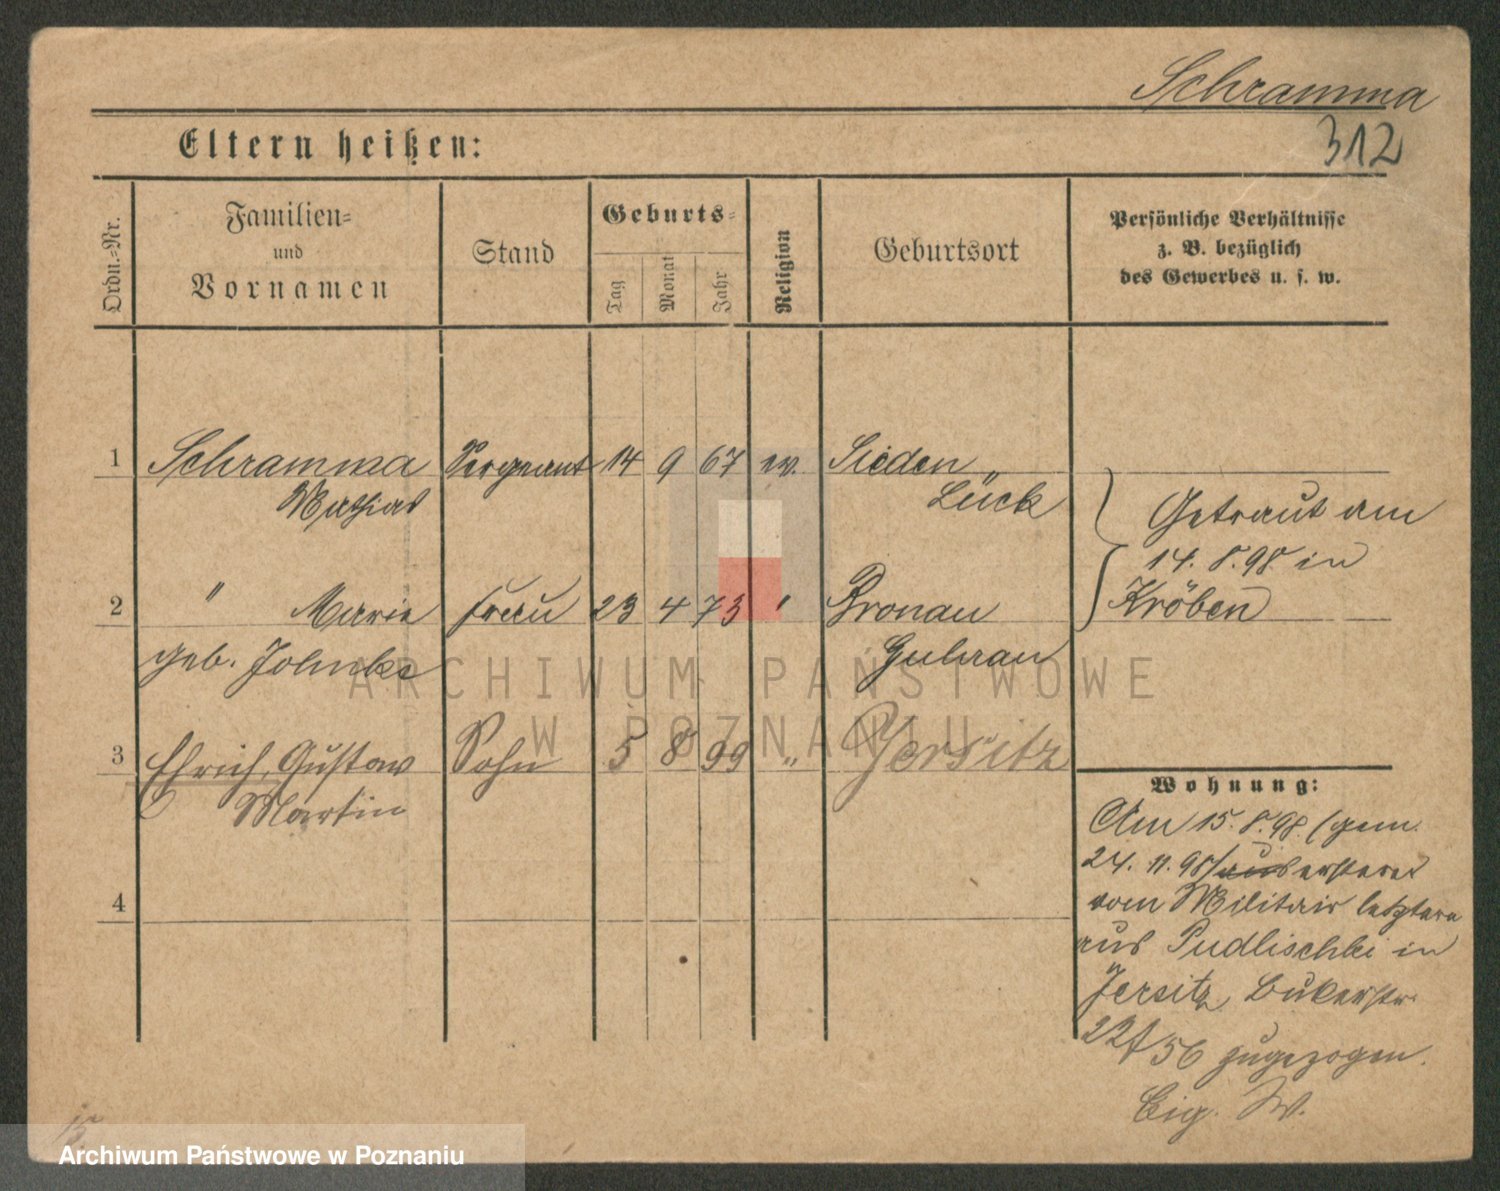 Schramma
312
Eltern heißen:
Ordn.-Nr.
Familien-
und
Vornamen
Stand
Geburts-
Tag
Monat
Jahr
Religion
Geburtsort
Persönliche Verhältnisse
z. B. bezüglich
des Gewerbes u. s. w.
1 Schramma Sergeant 14 9 67 ev. Sieden
Mathias Lück
Getraut am
14. 8. 98 in
Kröben
2 " Marie Frau 23 4 73 " Bronau
geb. Guhrau
3 Ehrich, Gustav Sohn 5 8 99 " Jersitz
Martin
4
Wohnung:
Am 15. 8. 98. (gem.
24. 11. 98) ersterer
vom Militair letztere
aus Pudlischki in
Jersitz, Bukerstr.
56 zugezogen.
Eig. W.
15
ARCHIWUM PAŃSTWOWE
W POZNANIU
Archiwum Państwowe w Poznaniu